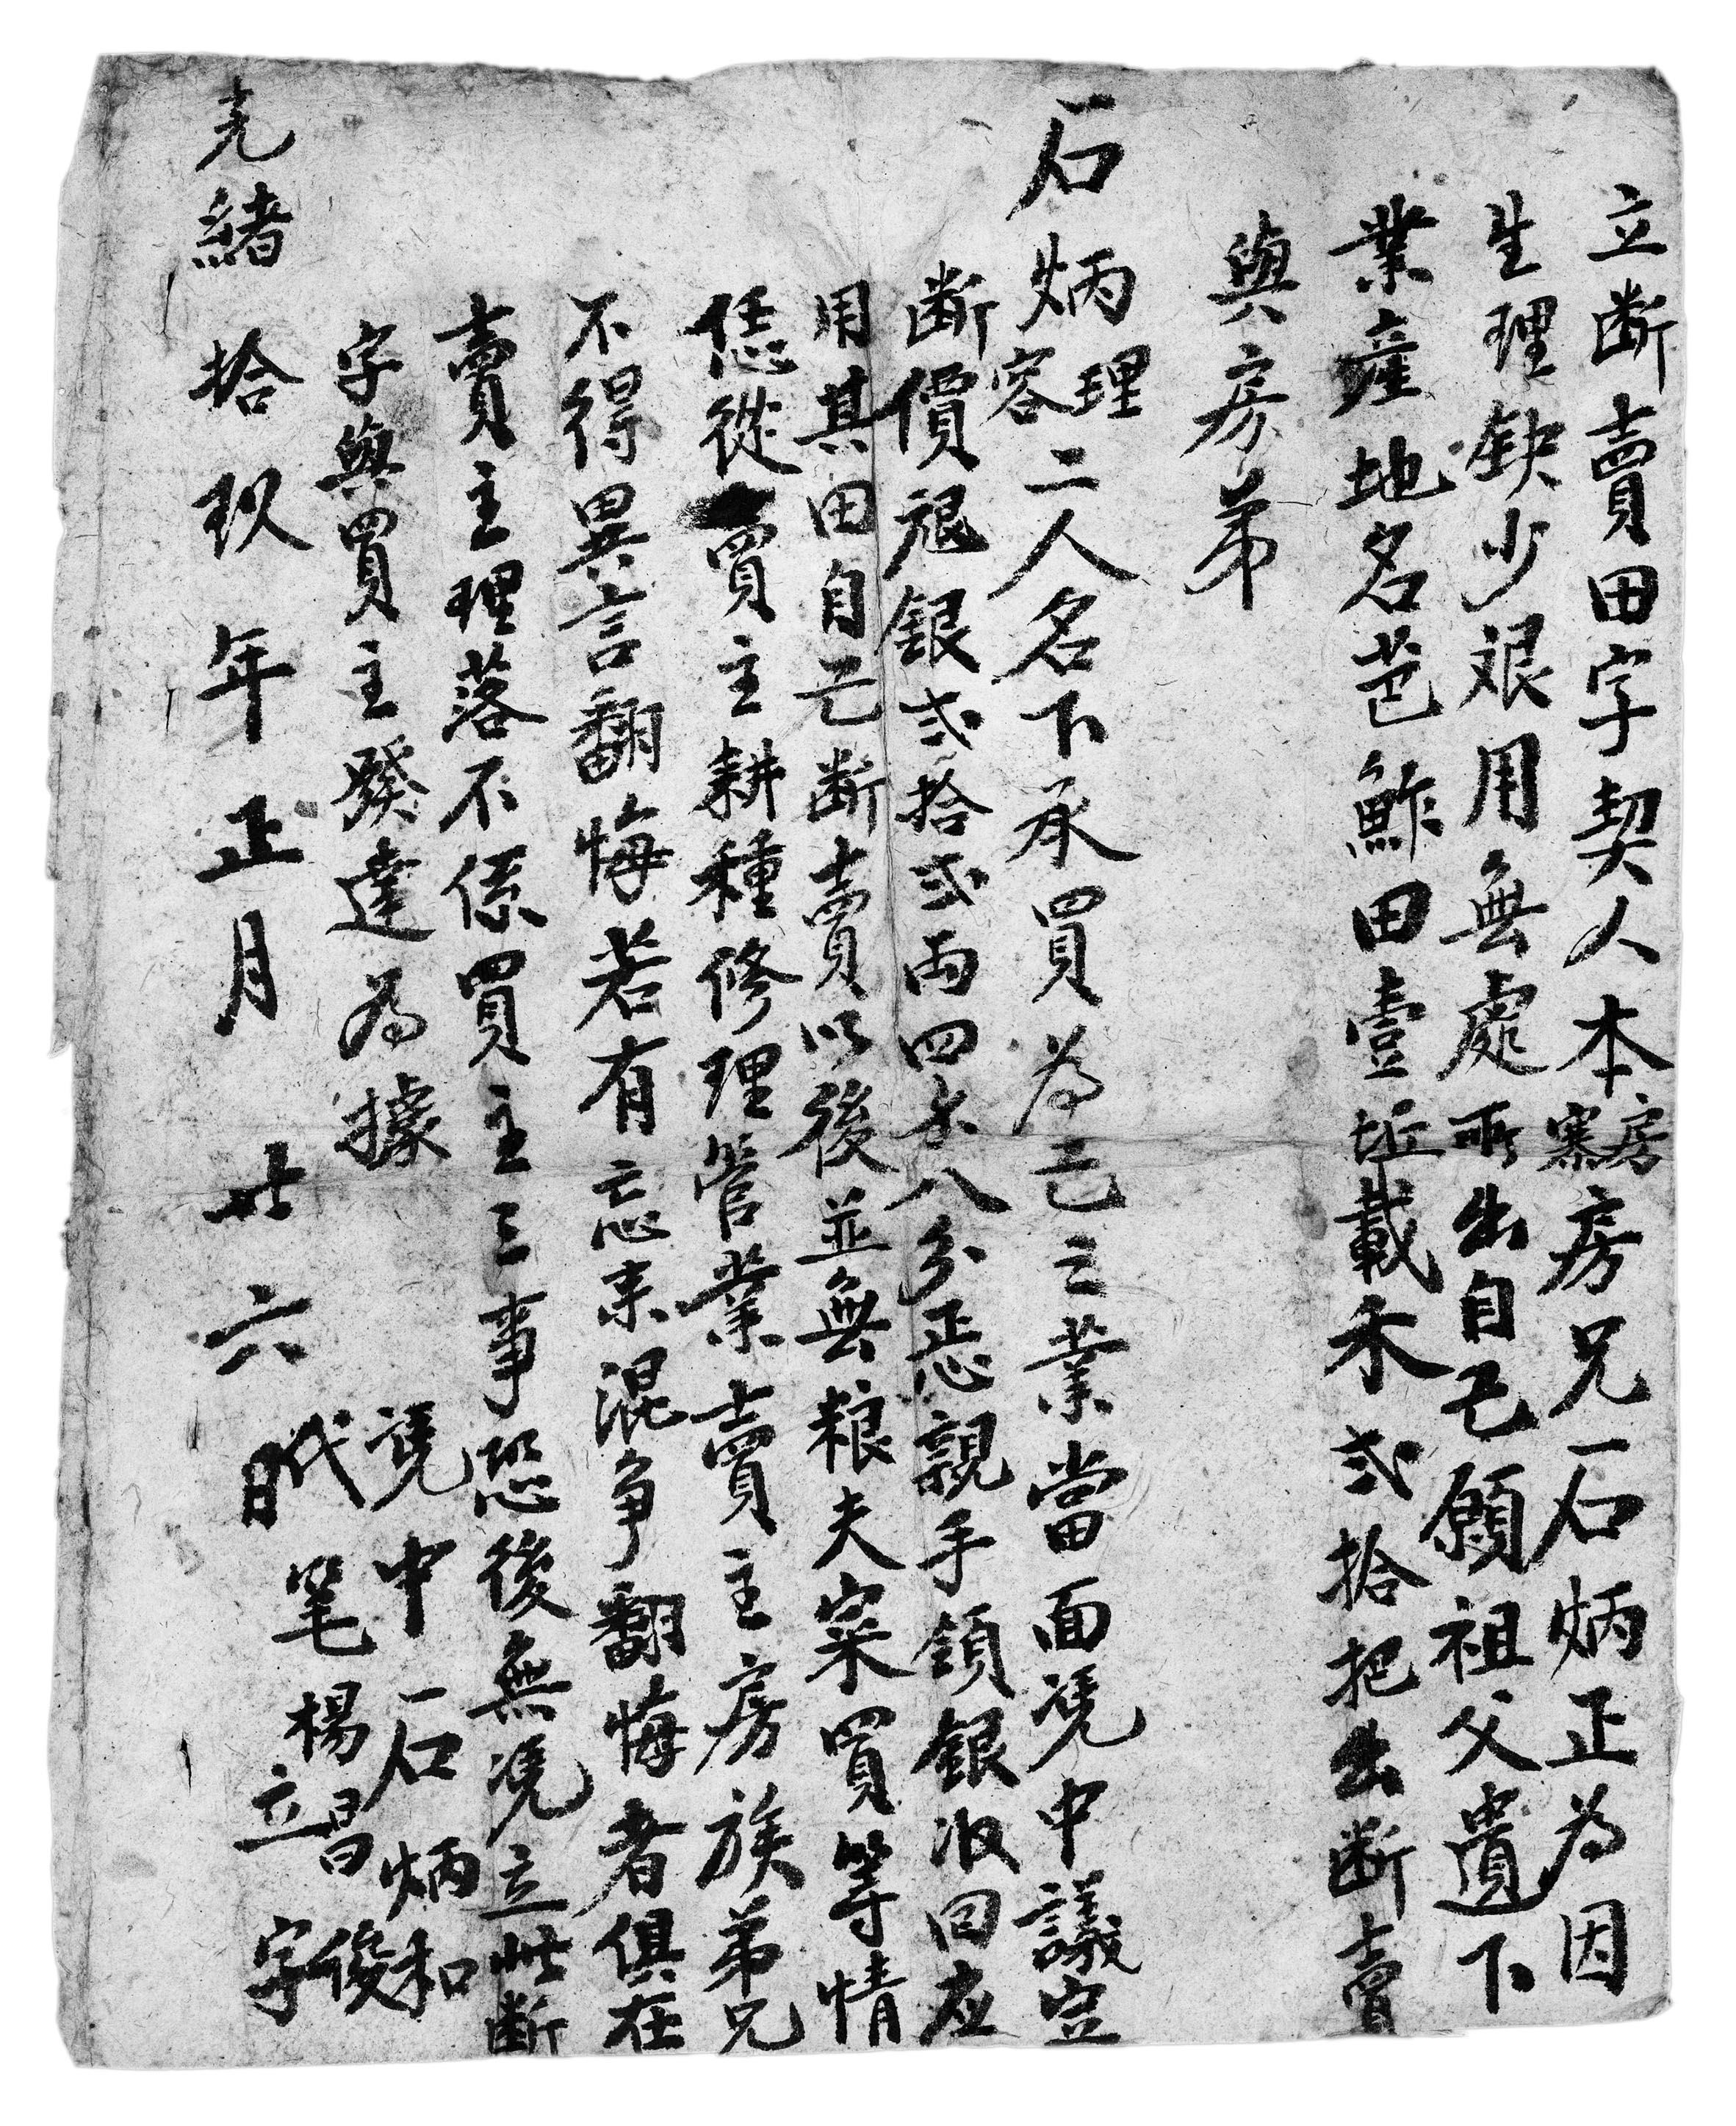 立断賣田字契人本寨房房兄石炳正為因
生理缺少艱用無處所出自己願祖父遺下
業產地名芭鮓田壹坵載禾弍拾把出断賣
與房弟
石炳理容二人名下承買為己之業當面凴中議定
断價紋銀弍拾弍両四錢八分正親手領銀收回應
用其田自己断賣以後並無粮夫寀買等情
恁從買主耕種修理管業賣主房族弟兄
不得異言翻悔若有忘来混争翻悔者俱在
賣主理落不係買主三事恐後無凴立此断
字與買主發達為據
凴中石炳和
代笔楊昌俊
光緒拾玖年正月廿六日立字